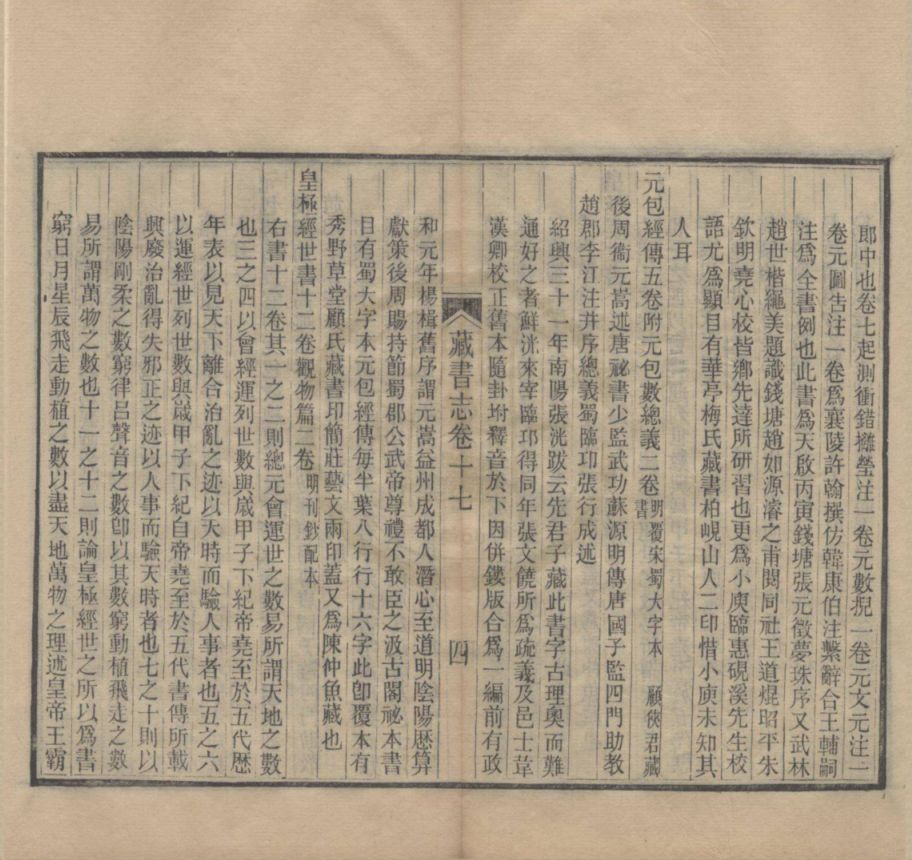 郎中也卷七起測衝錯攡瑩注一卷元數掜一卷元文元注二
卷元圖告注一卷爲襄陵許翰撰仿韓康伯注繫辭合王輔嗣
注爲全書例也此書爲天啟丙寅錢塘張元徵夢珠序又武林
趙世楷繩美題識錢塘趙如源濬之甫閱同社王道焜昭平朱
欽明堯心校皆鄉先達所研習也更爲小庾臨惠硯溪先生校
語尤爲顯目有華亭梅氏藏書柏峴山人二印惜小庾未知其
人耳
元包經傳五卷附元包數總義二卷 明覆宋蜀大字本 顧俠君藏書
後周衞元嵩述唐祕書少監武功蘇源明傳唐國子監四門助教
趙郡李江注并序總義蜀臨邛張行成述
紹興三十一年南陽張洸跋云先君子藏此書字古理奧而難
通好之者鮮洸來宰臨邛得同年張文饒所爲疏義及邑士韋
漢卿校正舊本隨卦坿釋音於下因併鏤版合爲一編前有政
藏書志卷十七 四
和元年楊楫舊序謂元嵩益州成都人潛心至道明陰陽厯算
獻策後周賜持節蜀郡公武帝尊禮不敢臣之汲古閣祕本書
目有蜀大字本元包經傳每半葉八行行十六字此卽覆本有
秀野草堂顧氏藏書印簡莊藝文兩印蓋又爲陳仲魚藏也
皇極經世書十二卷觀物篇二卷 明刊鈔配本
右書十二卷其一之二則總元會運世之數易所謂天地之數
也三之四以會經運列世數與嵗甲子下紀帝堯至於五代厯
年表以見天下離合治亂之迹以天時而驗人事者也五之六
以運經世列世數與嵗甲子下紀自帝堯至於五代書傳所載
興廢治亂得失邪正之迹以人事而驗天時者也七之十則以
陰陽剛柔之數窮律呂聲音之數卽以其數窮動植飛走之數
易所謂萬物之數也十一之十二則論皇極經世之所以爲書
窮日月星辰飛走動植之數以盡天地萬物之理述皇帝王霸